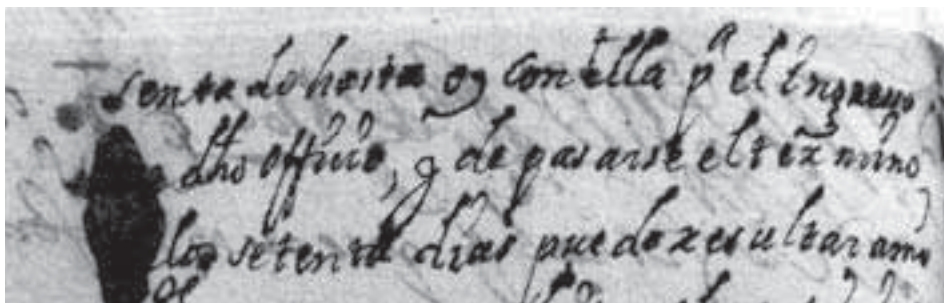 sentado hasta oy con ella pª el Ingreso
dho officio, q̃ de pasarse el termino
los setenta dias puedo resultar